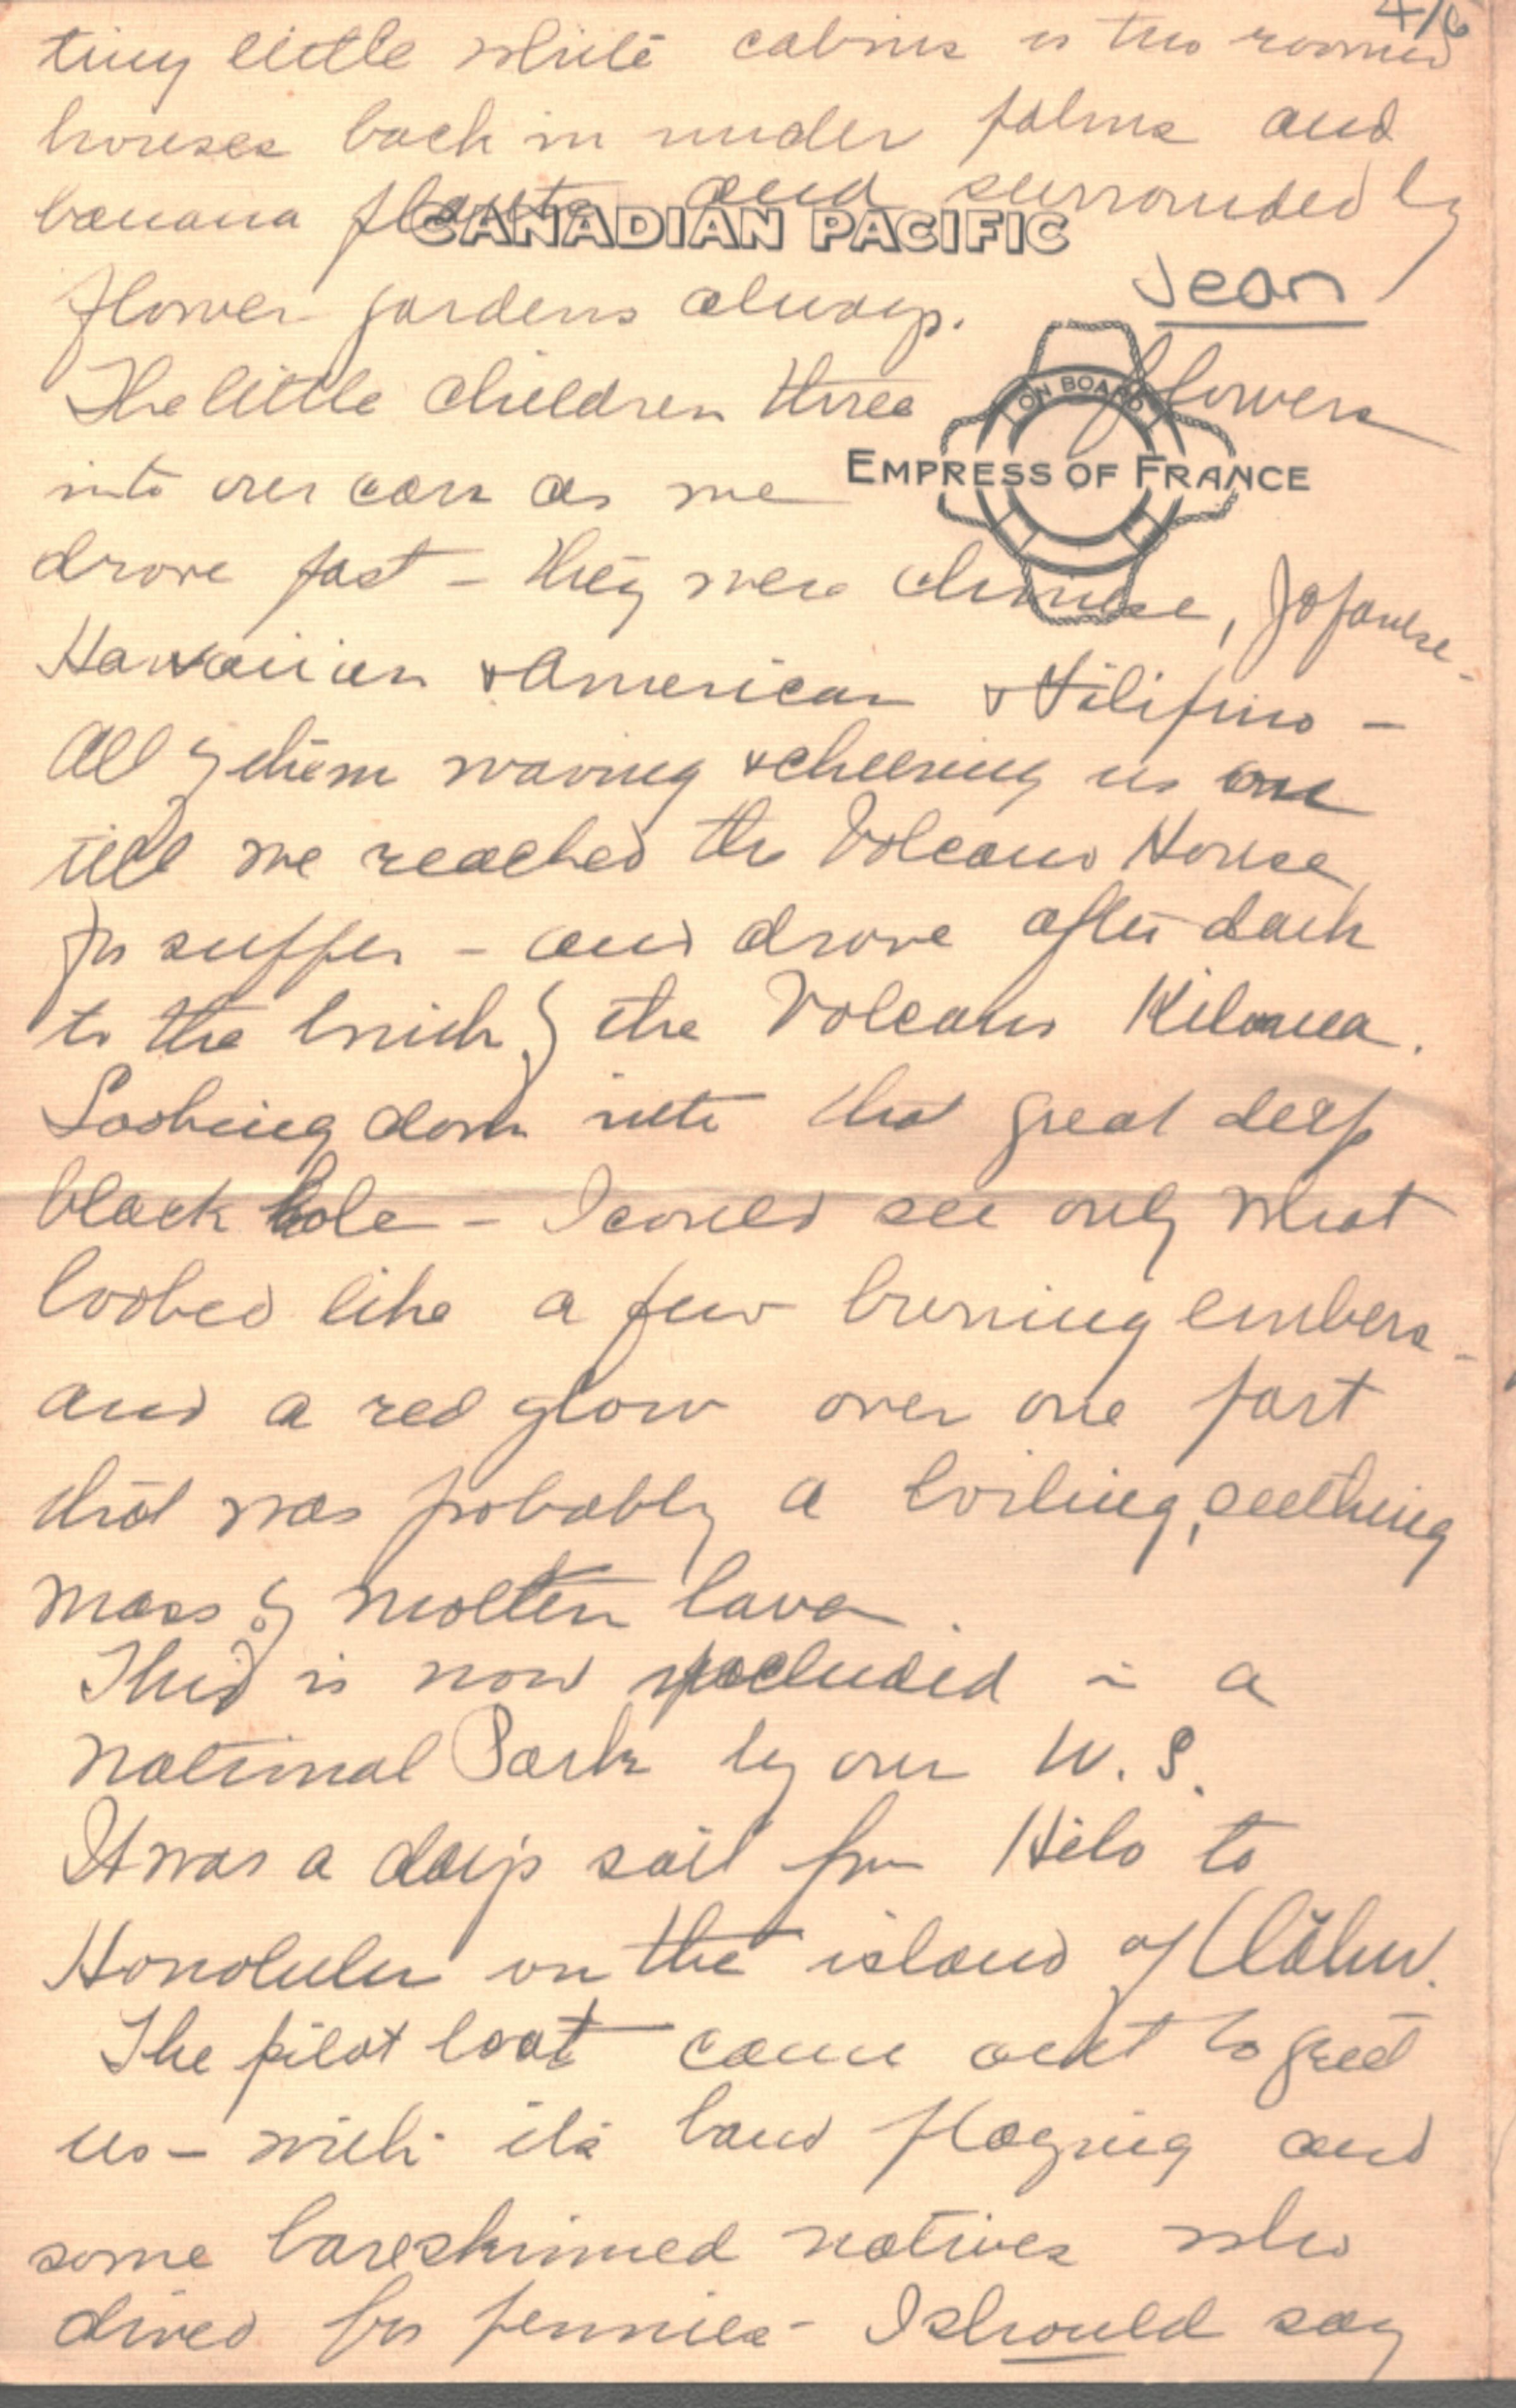 4/6
tiny little white cabins or two roomed
houses back in under palms and
banana plants and surrounded by
CANADIAN PACIFIC
Jean
flower gardens always.
The little children threw flowers
ON BOARD
into our cars as we
EMPRESS OF FRANCE
drove past - they were chinese, Japanese -
Hawaiian & American & Filipino -
All of them waving & cheering us on
till we reached the Volcano House
for supper - and drove after dark
to the brink of the Volcano Kilauea.
Looking down into that great deep
black hole - I could see only what
looked like a few burning embers -
and a red glow over one part
that was probably a boiling, seething
mass of molten lava.
This is now included in a
National Park by our U. S.
It was a day's sail from Hilo to
Honolulu on the island of Oahu.
The pilot boat came out to greet
us - with its band playing and
some bareskinned natives who
dived for pennies - I should say